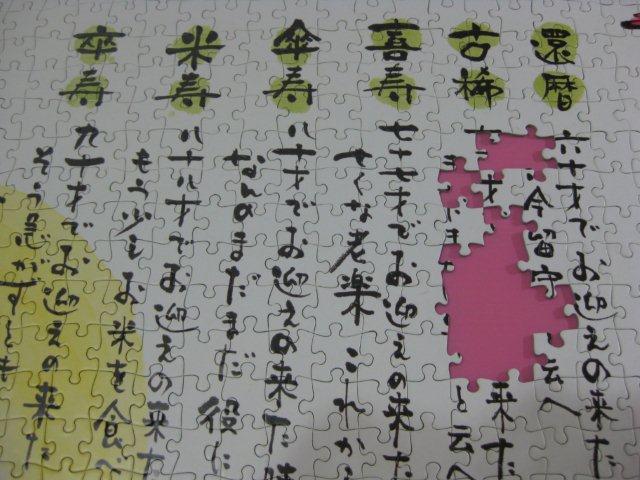 還暦
六十才でお迎えの来た
今留守 云へ
古稀
才 来た
と云へ
喜寿
七十七才でお迎えの来た
せくな老楽 これから
傘寿
八十才でお迎えの来た時
なんのまだまだ 役に
米寿
八十八才でお迎えの来た
もう少しお米を食べ
卒寿
九十才でお迎えの来た
そう急がずとも